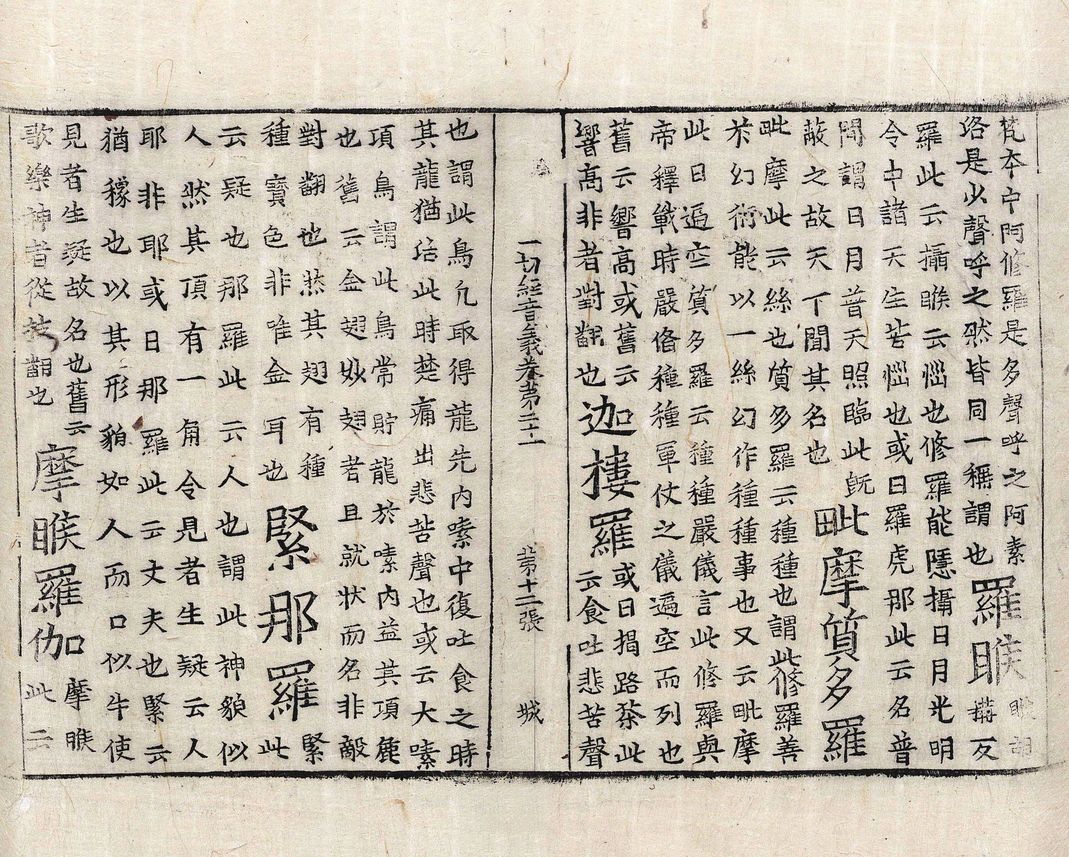 梵本中阿脩羅是多聲呼之阿素
洛是少聲呼之然皆同一稱謂也
羅睺
睺胡
搆反
羅此云攝睺云惱也修羅能隱攝日月光明
令中諸天生苦惱也或曰羅虎那此云名普
聞謂日月普天照臨此旣
蔽之故天下聞其名也
毗摩質多羅
毗摩此云絲也質多羅云種種也謂此修羅善
於幻術能以一絲幻作種種事也又云毗摩
此曰遍空質多羅云種種嚴儀言此修羅與
帝釋戰時嚴俻種種軍仗之儀遍空而列也
舊云響高或舊云
響高非者對翻也
迦樓羅
或曰揭路荼此
云食吐悲苦聲
一切經音義卷第二十一
第十二張
城
也謂此鳥凢取得龍先內嗉中復吐食之時
其龍猶活此時楚痛出悲苦聲也或云大嗉
項鳥謂此鳥常貯龍於嗉內益其項麁
也舊云金翅妙翅者且就狀而名非敵
對翻也然其翅有種
種寶色非唯金耳也
緊那羅
緊
此
云疑也那羅此云人也謂此神貌似
人然其頂有一角令見者生疑云人
耶非耶或曰那羅此云丈夫也緊云
猶豫也以其形貌如人而口似牛使
見者生疑故名也舊云
歌樂神者從 翻也
摩睺羅伽
摩睺
此云